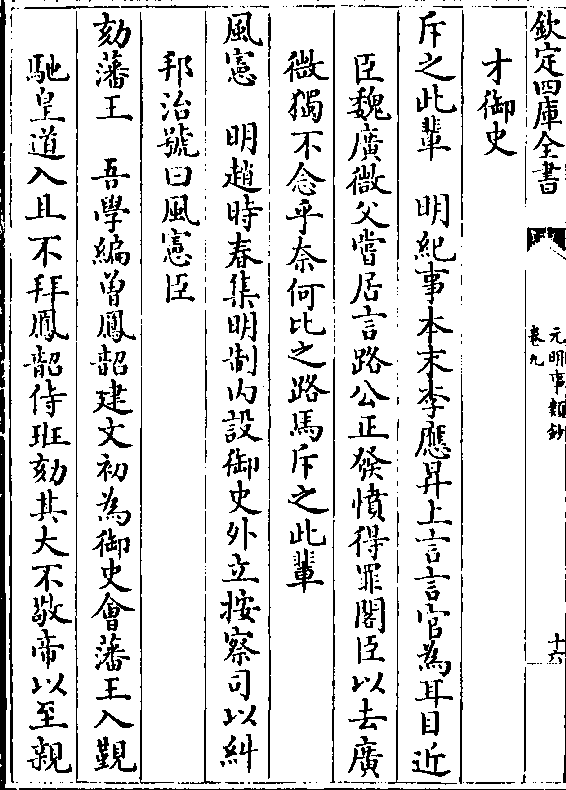 欽定四庫全書
元明事類鈔
卷九
十六
才御史
斥之此輩　明紀事本末李應昇上言言官為耳目近
臣魏廣微父嘗居言路公正發憤得罪閣臣以去廣
微獨不念乎奈何比之路馬斥之此輩
風憲　明趙時春集明制内設御史外立按察司以糾
邦治號曰風憲臣
劾藩王　吾學編曾鳳韶建文初為御史會藩王入覲
馳皇道入且不拜鳳韶侍班劾其大不敬帝以至親